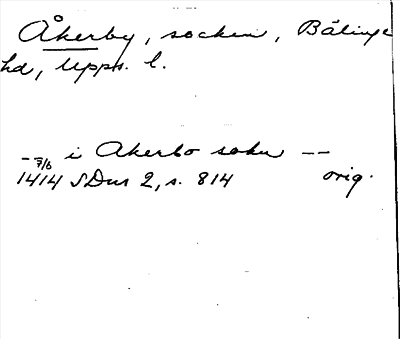 Åkerby, socken, Bälinge
hd, Upps. l.
-- i Akerbo sokn --
7/6
1414 SDns 2, s. 814 orig.